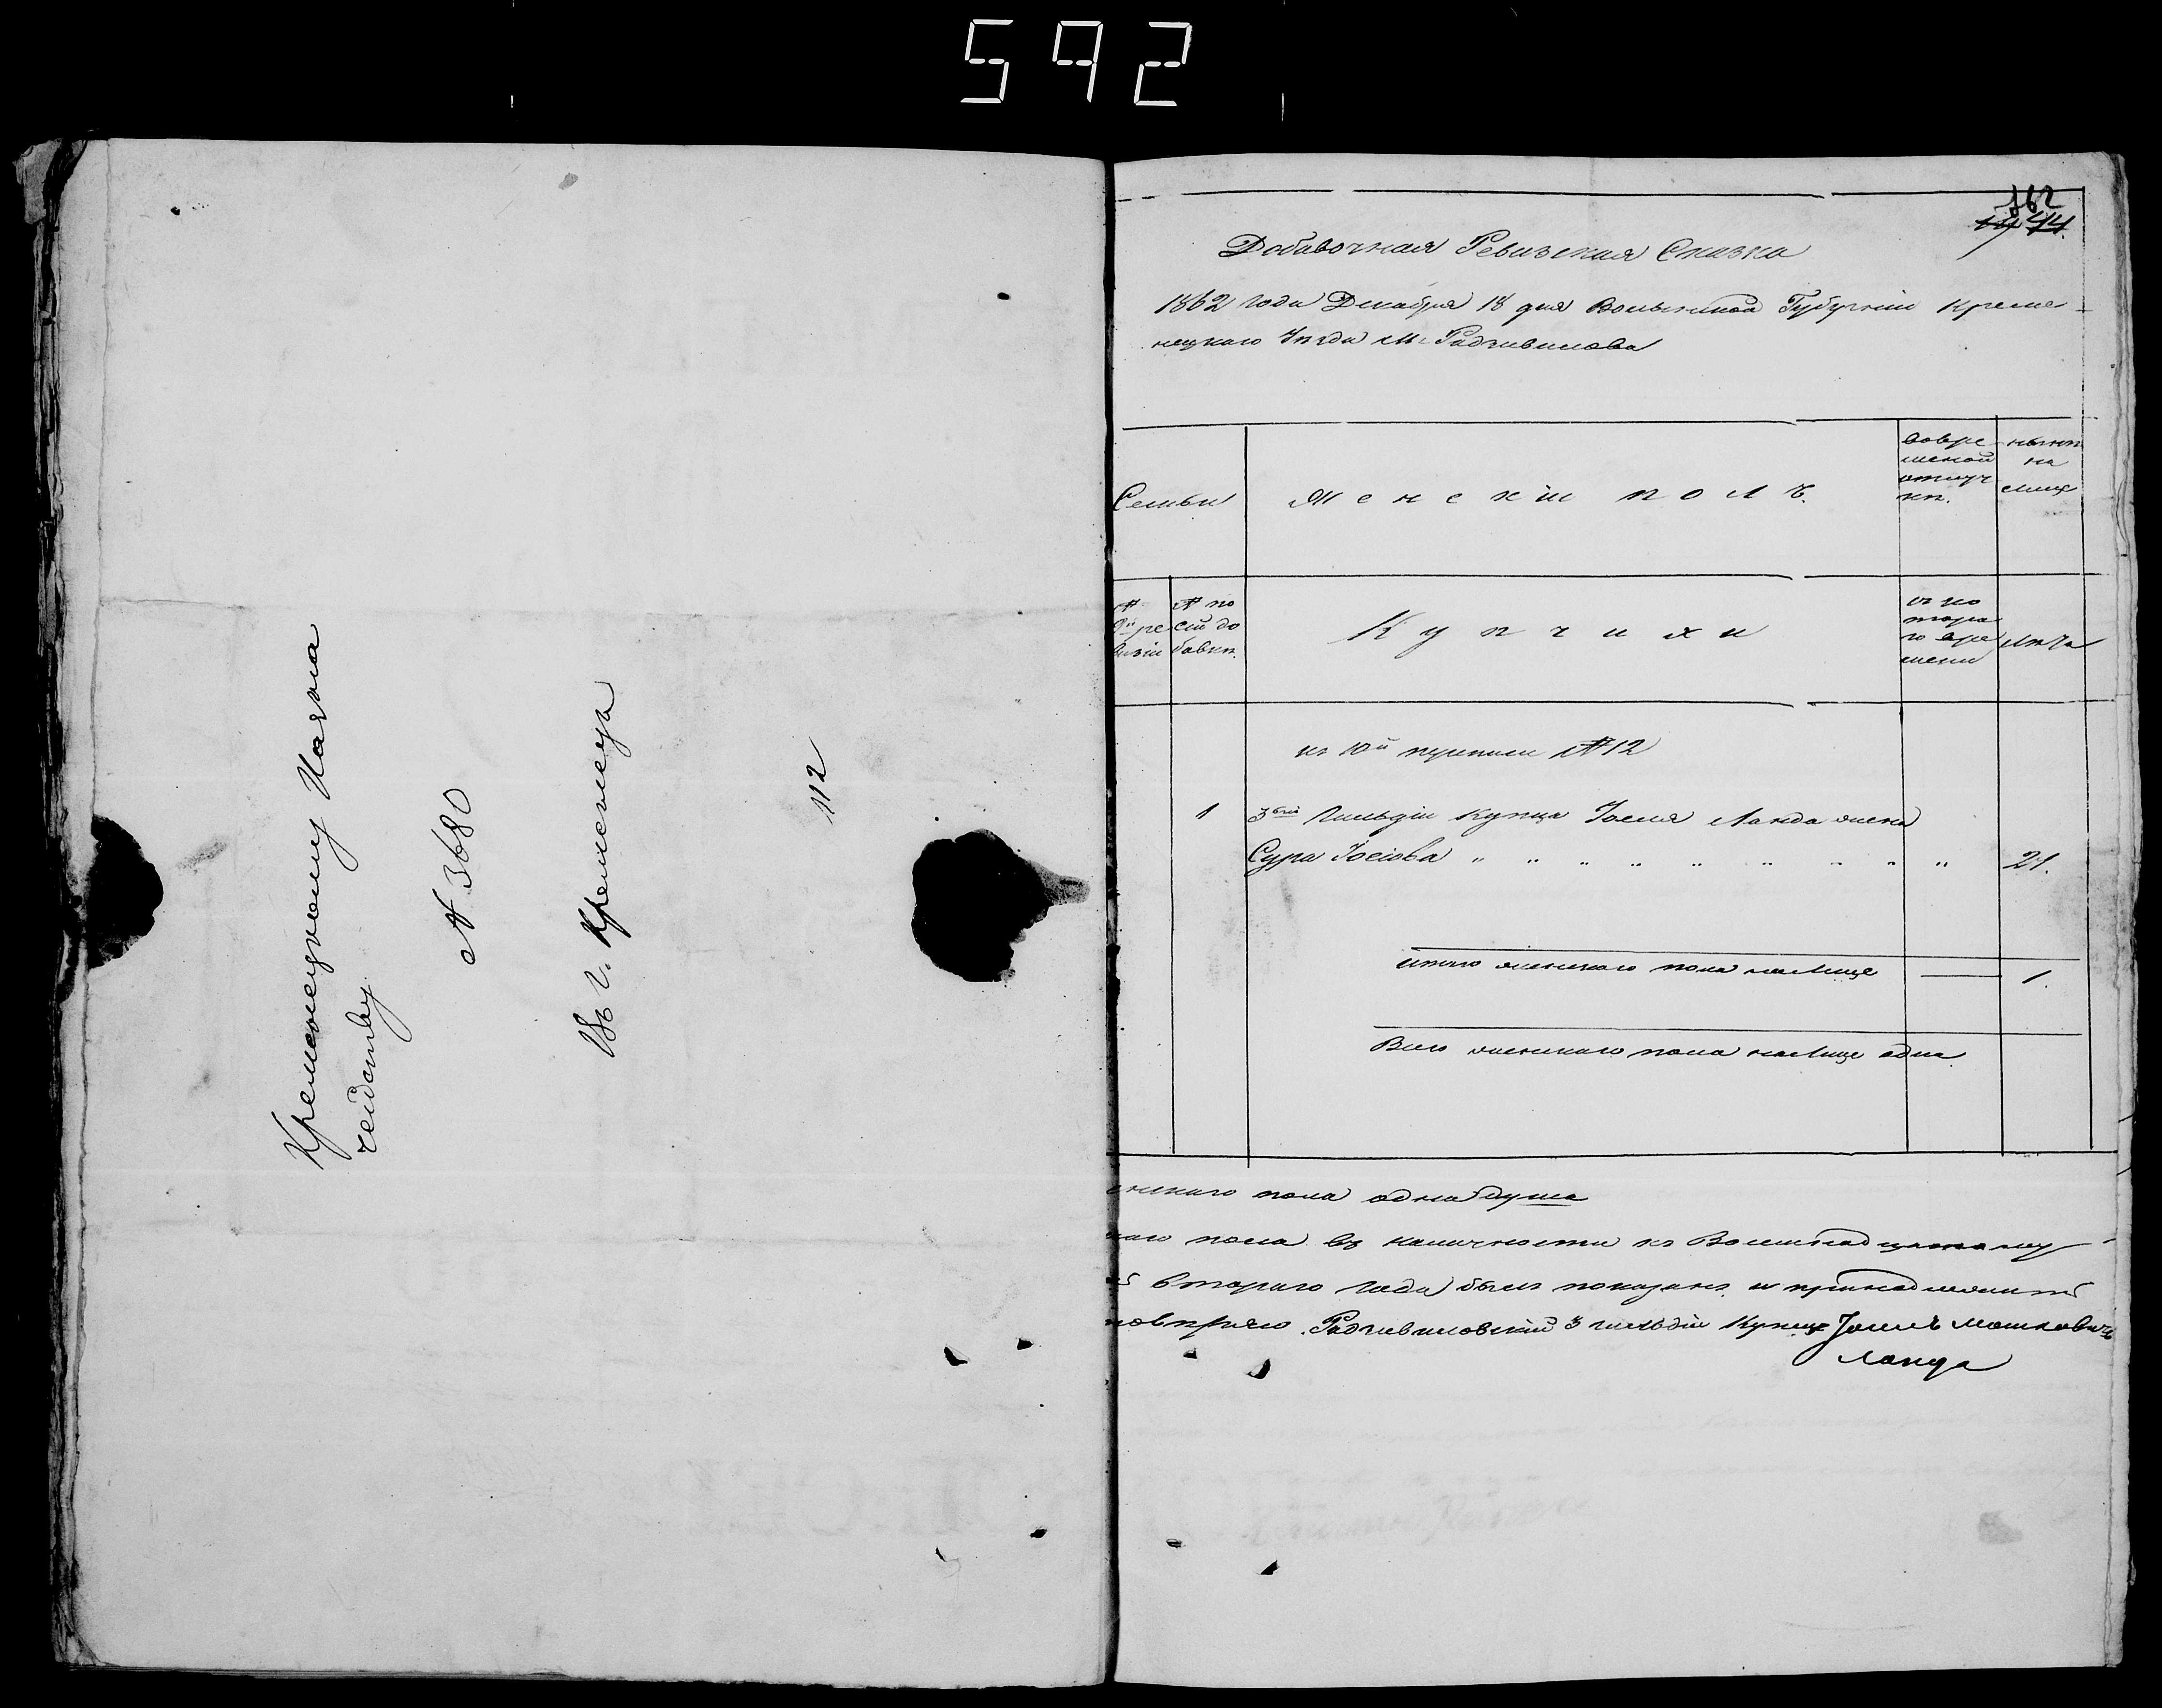 592
Кременецкому Казна
чейству
№ 3680
Въ г. Кременецъ
112
162
44.
Добавочная Ревизская Сказка
1862 года Декабря 18 дня Волынской Губерніи Креме
нецкаго Уѣзда М. Радзивилова
Семьи
Женскій полъ.
Во вре
менной
отлуч
кѣ.
нынѣ
на
лице
№
9й ре
визіи
№ по
сей до
бавкѣ.
Купчихи
съ ко
тора
го вре
мени
Лѣта
къ 10й переписи № 12
1 3ей Гильдіи Купца Іоселя Ланда жена
Сура Іосіова " " " " " " " " " 21.
Итого женскаго пола на лице — 1.
Всего женскаго пола на лице одна.
енскаго пола одна душа
каго пола въ наличности къ Восемнадцатому
втораго года былъ показанъ и принадлежитъ
Радзивиловскій 3 гильдіи Купецъ Іосель Мошковичъ
Ланда